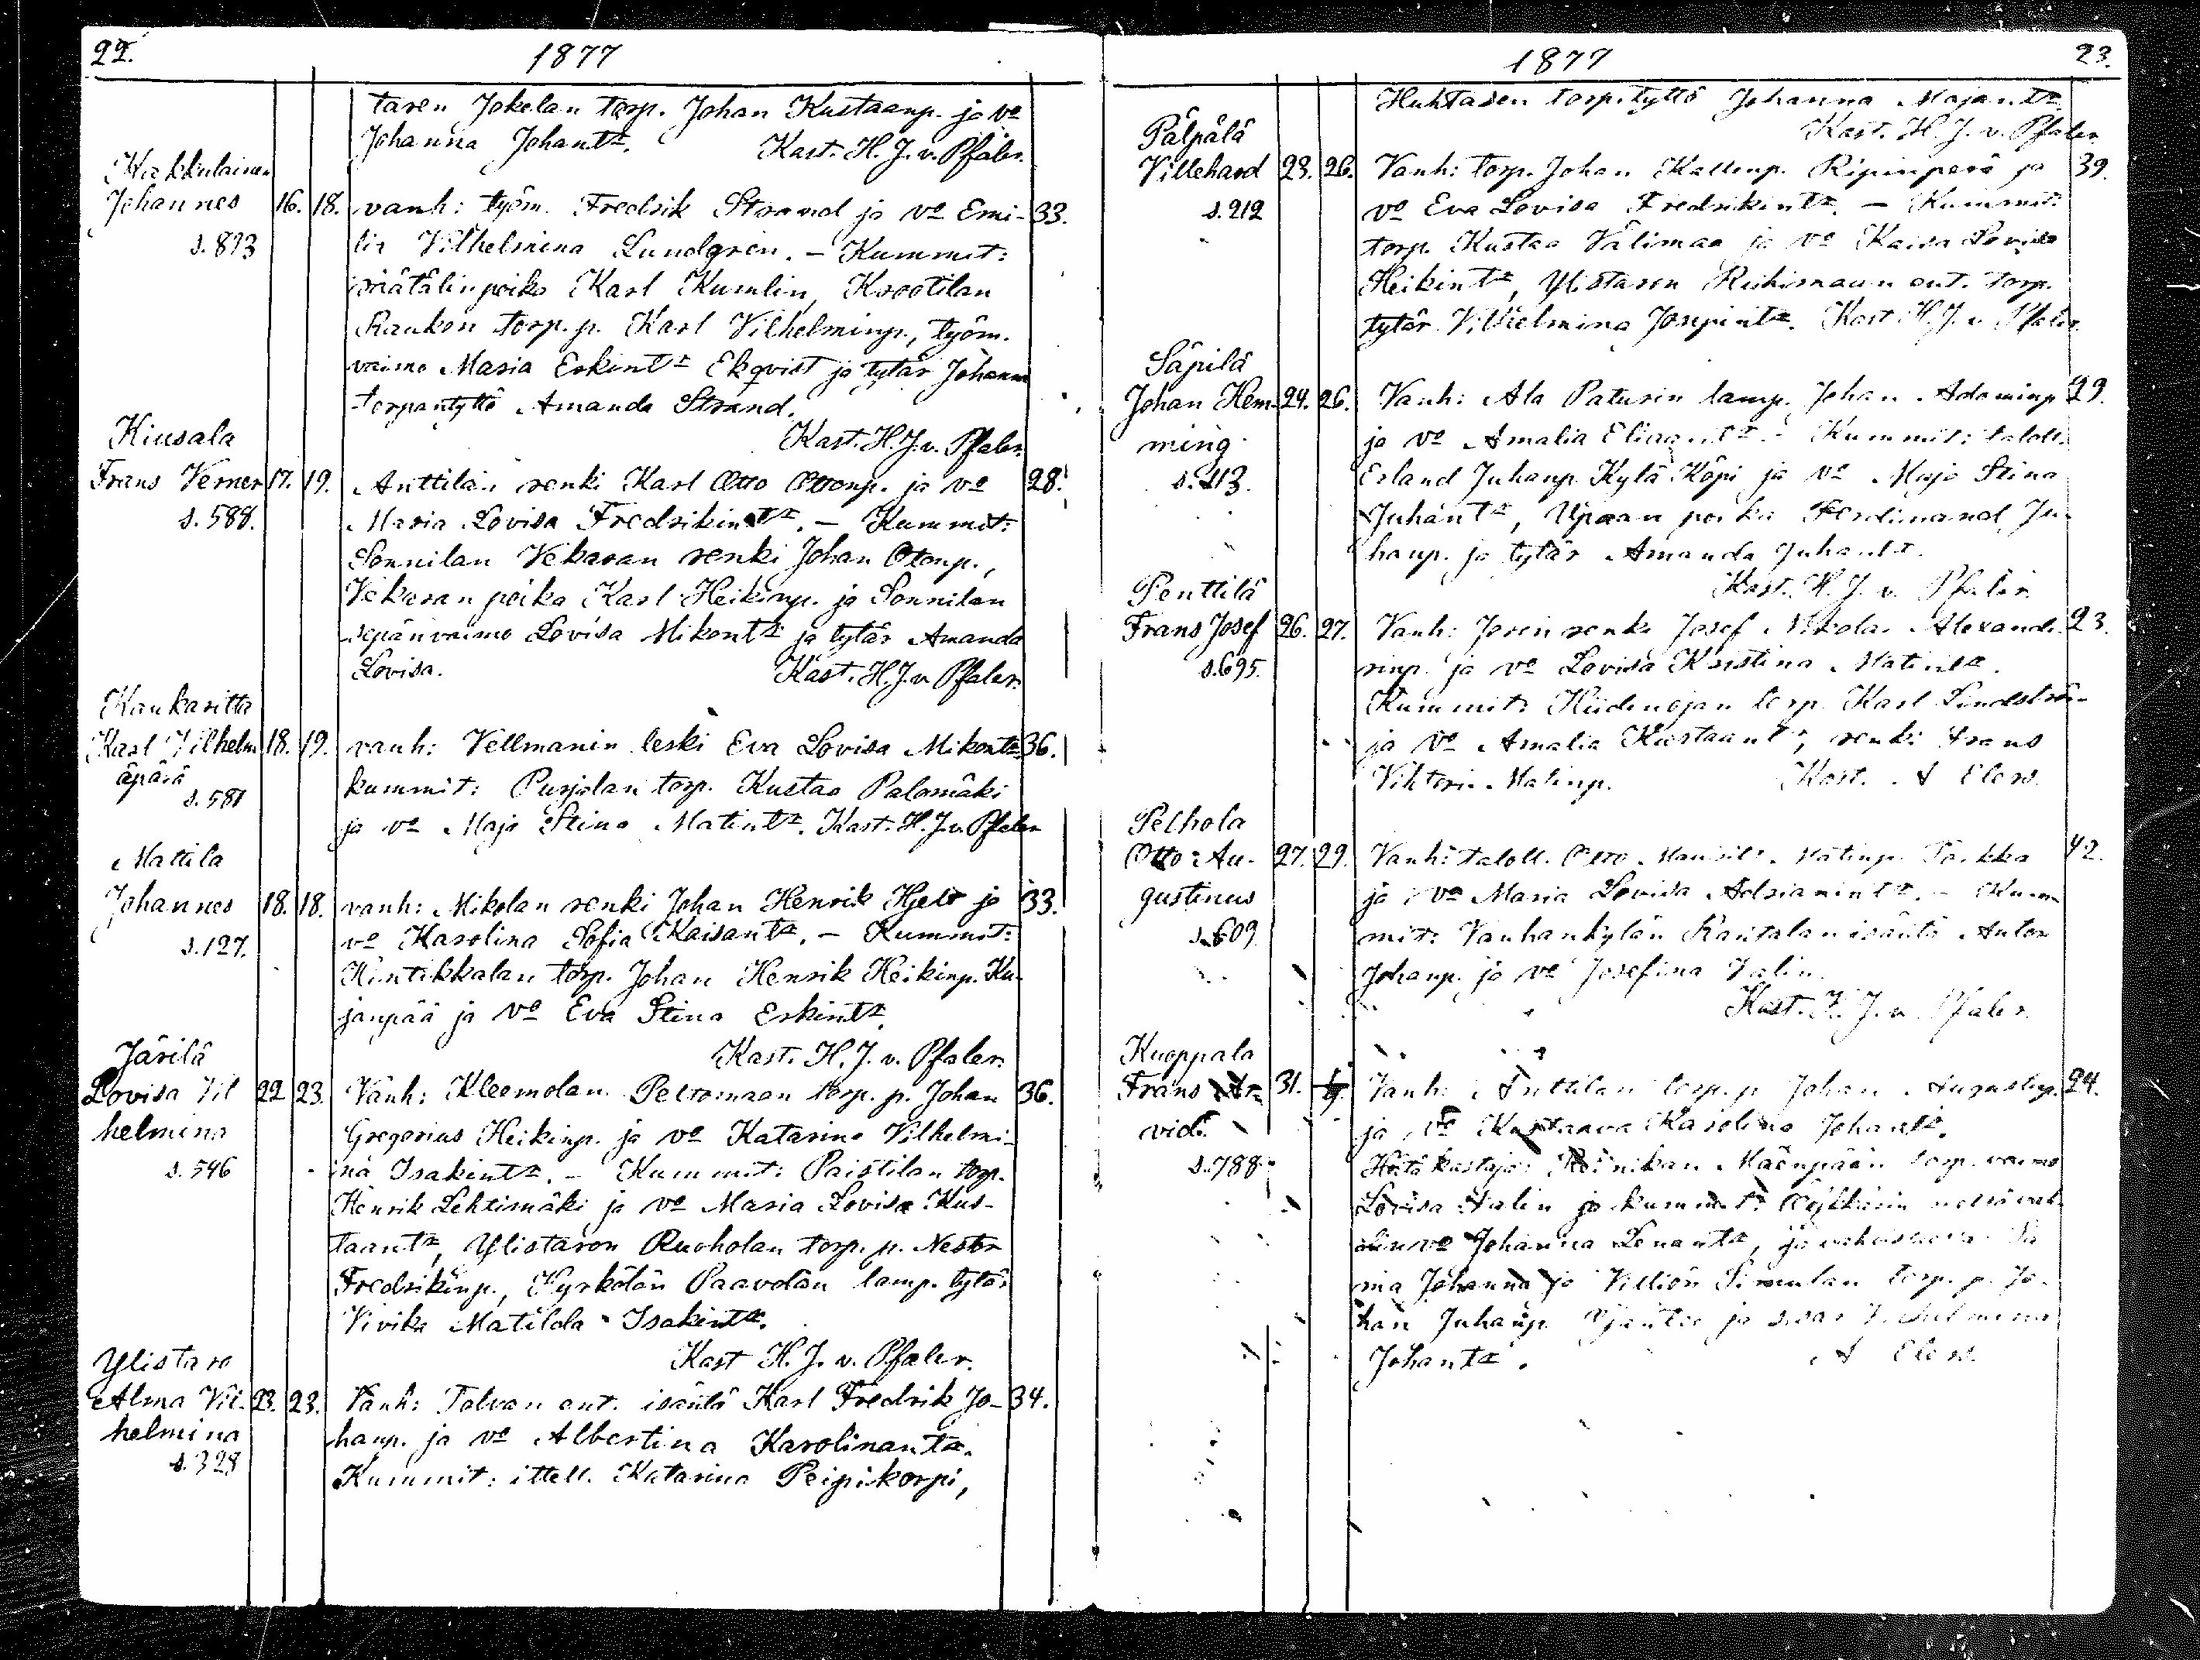 22. 1877
taren Jokelan torp. Johan Kustaanp. ja vo
Johanna Johantr. Kast. H. J. v. Pfaler.
Kakkulainen
Johannes 16. 18. vanh: työm. Fredrik Strand ja vo Emi- 33.
s. 893 lia Vilhelmina Lundgren. – Kummit:
räätälinpoika Karl Kumlin, Krootilan
Raukon torp. p. Karl Vilhelminp., työm.
vaimo Maria Erkintr Ekqvist ja tytär Johanna
torpantyttö Amanda Strand.
Kast. H. J. v. Pfaler.
Kiusala
Frans Verner 17. 19. Anttilan renki Karl Otto Ottonp. ja vo 28.
s. 588. Maria Lovisa Fredrikintr. – Kummit:
Sonnilan Vekaran renki Johan Otonp.,
Vekaran poika Karl Heikinp. ja Sonnilan
sepänvaimo Lovisa Mikontr ja tytär Amanda
Lovisa. Kast. H. J. v. Pfaler.
Kaukaritta
Karl Vilhelm 18. 19. vanh: Vellmanin leski Eva Lovisa Mikontr 36.
äpärä kummit: Purjolan torp. Kustaa Palomäki
s. 581 ja vo Maja Stina Matintr. Kast. H. J. v. Pfaler
Mattila
Johannes 18. 18. vanh: Mikolan renki Johan Henrik Hjelt ja 33.
s. 127. vo Karolina Sofia Kaisantr. – Kummit:
Kintikkalan torp. Johan Henrik Heikinp. Ku-
janpää ja vo Eva Stina Erkintr.
Kast. H. J. v. Pfaler.
Järilä
Lovisa Vil 22 23. Vanh: Kleemolan Peltomaan torp. p. Johan 36.
helmina Gregorius Heikinp. ja vo Katarina Vilhelmi-
s. 546 na Isakintr. – Kummit: Paistilan torp.
Henrik Lehtimäki ja vo Maria Lovisa Kus-
taantr, Ylistaron Ruoholan torp. p. Nestor
Fredrikinp., Kyrkölän Paavolan lamp. tytär
Vivika Matilda Isakintr.
Kast H. J. v. Pfaler.
Ylistaro
Alma Vil- 23. 23. Vanh: Tolvan ent. isäntä Karl Fredrik Jo- 34.
helmina hanp. ja vo Albertina Karolinantr.
s. 328 Kummit: ittell. Katarina Peipikorpi,
1877 23.
Huhtasen torp. tyttö Johanna Majantr.
Kast. H. J. v. Pfaler
Pälpälä
Villehard 23. 26. Vanh: torp. Johan Kallenp. Ripinperä ja 39.
s. 212 vo Eva Lovisa Fredrikintr. – Kummit:
torp. Kustaa Välimaa ja vo Kaisa Lovisa
Heikintr, Ylistaron Riihimaan ent. torp.
tytär Vilhelmina Josepintr. Kast H. J. v. Pfaler.
Säpilä
Johan Hem- 24. 26. Vanh: Ala Paturin lamp. Johan Adaminp 29.
ming ja vo Amalia Eliantr. – Kummit: taloll.
s. 213. Erland Juhanp. Kylä Köpi ja vo Maja Stina
Juhantr, Upaan poika Ferdinand Ju-
hanp. ja tytär Amanda Juhantr.
Kast. H. J. v. Pfaler.
Penttilä
Frans Josef 26. 27. Vanh: renki Josef Nikolai Alexande- 23.
s. 695. rinp. ja vo Lovisa Kristina Matintr.
Kummit: Hiidenojan torp. Karl Lindström
ja vo Amalia Kustaantr, renki Frans
Viktori Matinp. Kast. A Elers.
Pelhola
Otto Au- 27. 29. Vanh: taloll. Otto Matinp. 42.
gustinus ja vo Maria Lovisa Adrianintr. – Kum-
s. 609 mit: Vanhankylän Rantalan isäntä Anton
Johanp. ja vo Josefiina Valin.
Kast. H. J. v. Pfaler.
Kuoppala
Frans Ar- 31. Vanh: Anttilan torp. p Johan Augustinp. 24.
vid. ja vo Kustaava Karolina Johantr.
s. 788 Hätäkastaja: Mäenpään torp. vaimo
Lovisa Salin ja kummit:
vo Johanna Lenantr, ja
ria Johanna ja Villiön Simulan torp. p. Jo-
han Juhanp. ja sisar Vilhelmina
Johantr. A Elers.